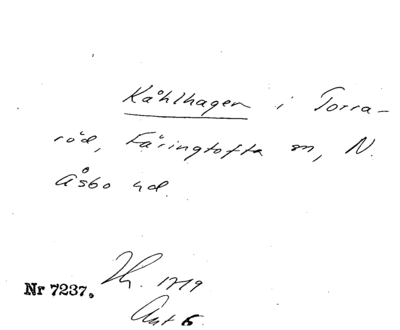 Kåhlhagen i Torra-
röd, Färingtofta sn, N.
Åsbo hd.
Nr 7237. Th. 1719
Akt 6.